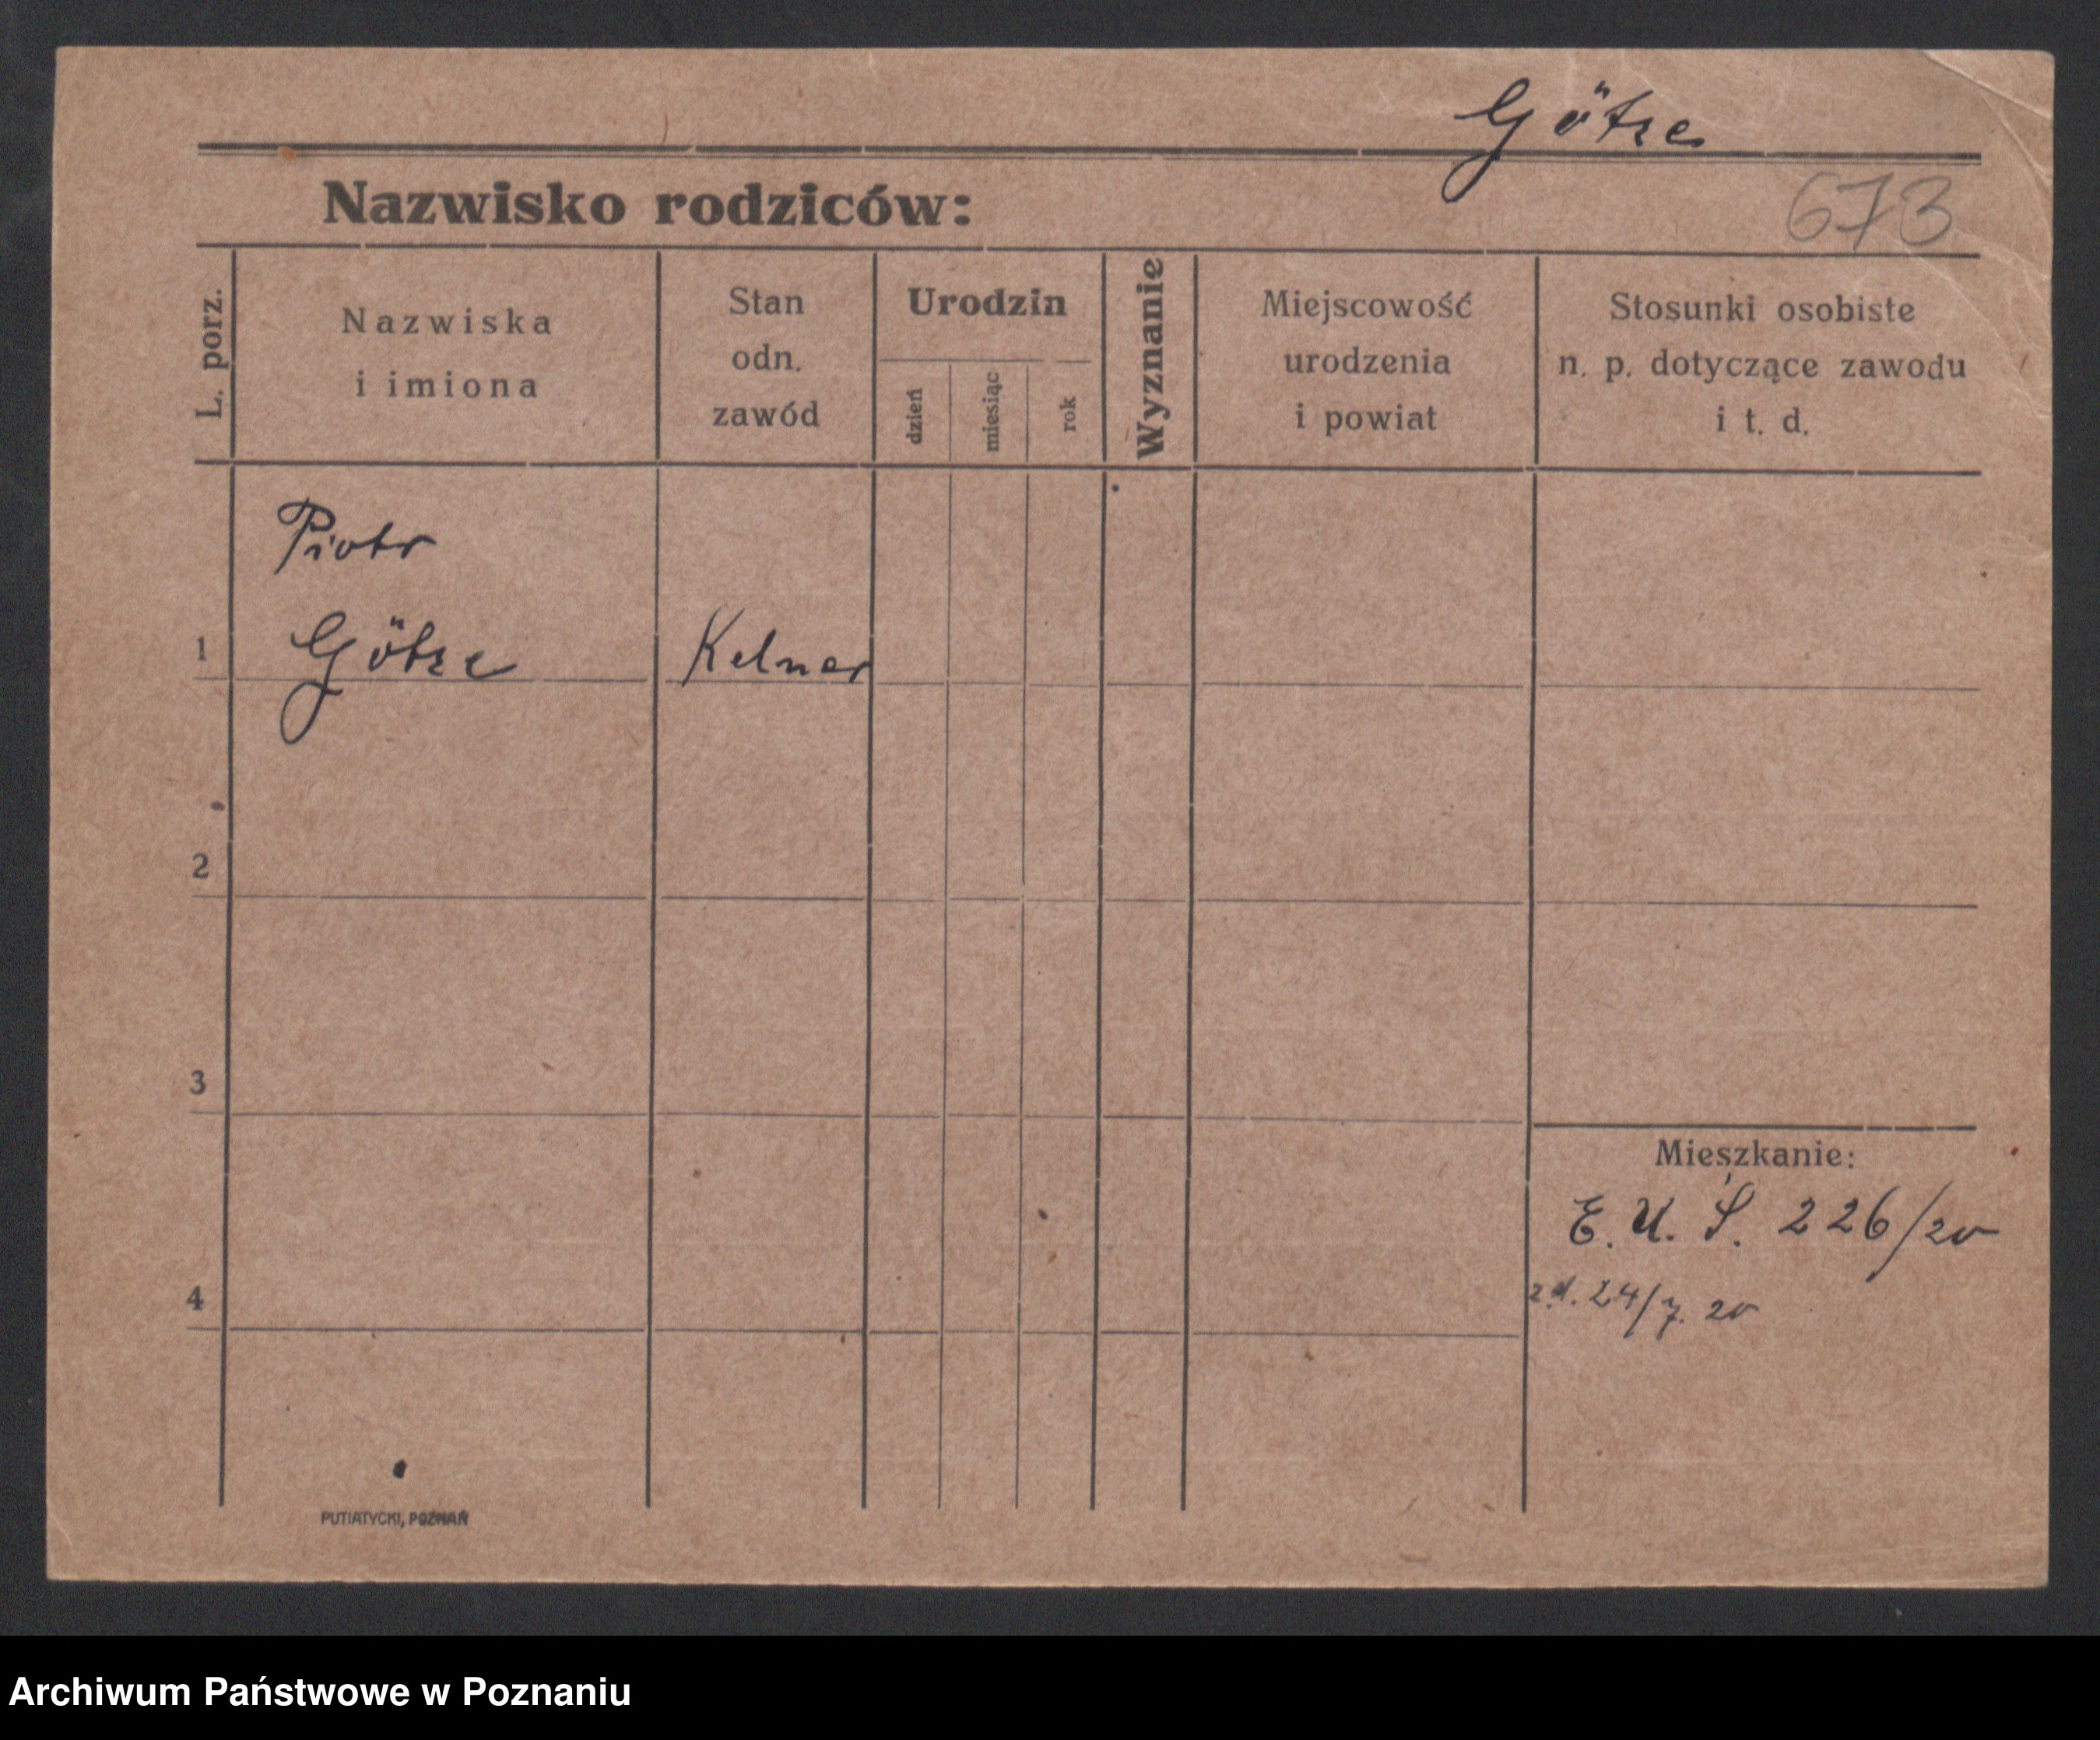 Götze
Nazwisko rodziców:
673
L. porz.
Nazwiska
i imiona
Stan
odn.
zawód
Urodzin
dzień
miesiąc
rok
Wyznanie
Miejscowość
urodzenia
i powiat
Stosunki osobiste
n. p. dotyczące zawodu
i t. d.
Piotr
1 Götze Kelner
2
3
Mieszkanie:
E. U. Ś. 226/20
z d. 24/7. 20
4
PUTIATYCKI, POZNAŃ
Archiwum Państwowe w Poznaniu